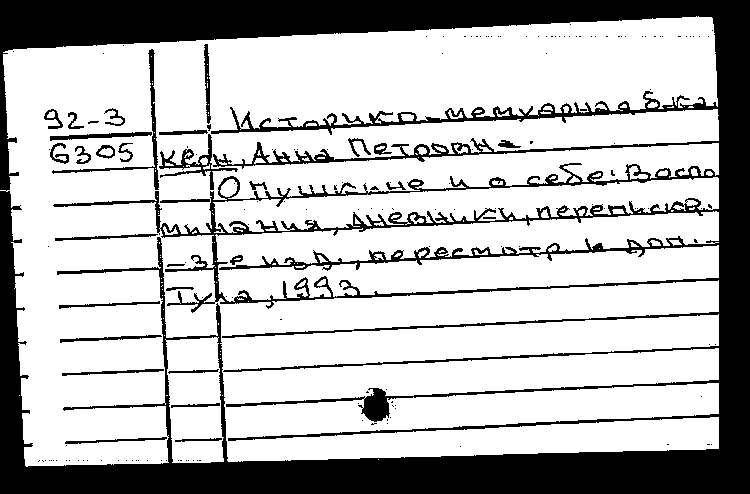 92-3 Историко-мемуарная б-ка.
6305 Керн, Анна Петровна.
О Пушкине и о себе: Воспо
минания, дневники, переписка.
-3-е изд., пересмотр. и доп.-
Тула, 1993.